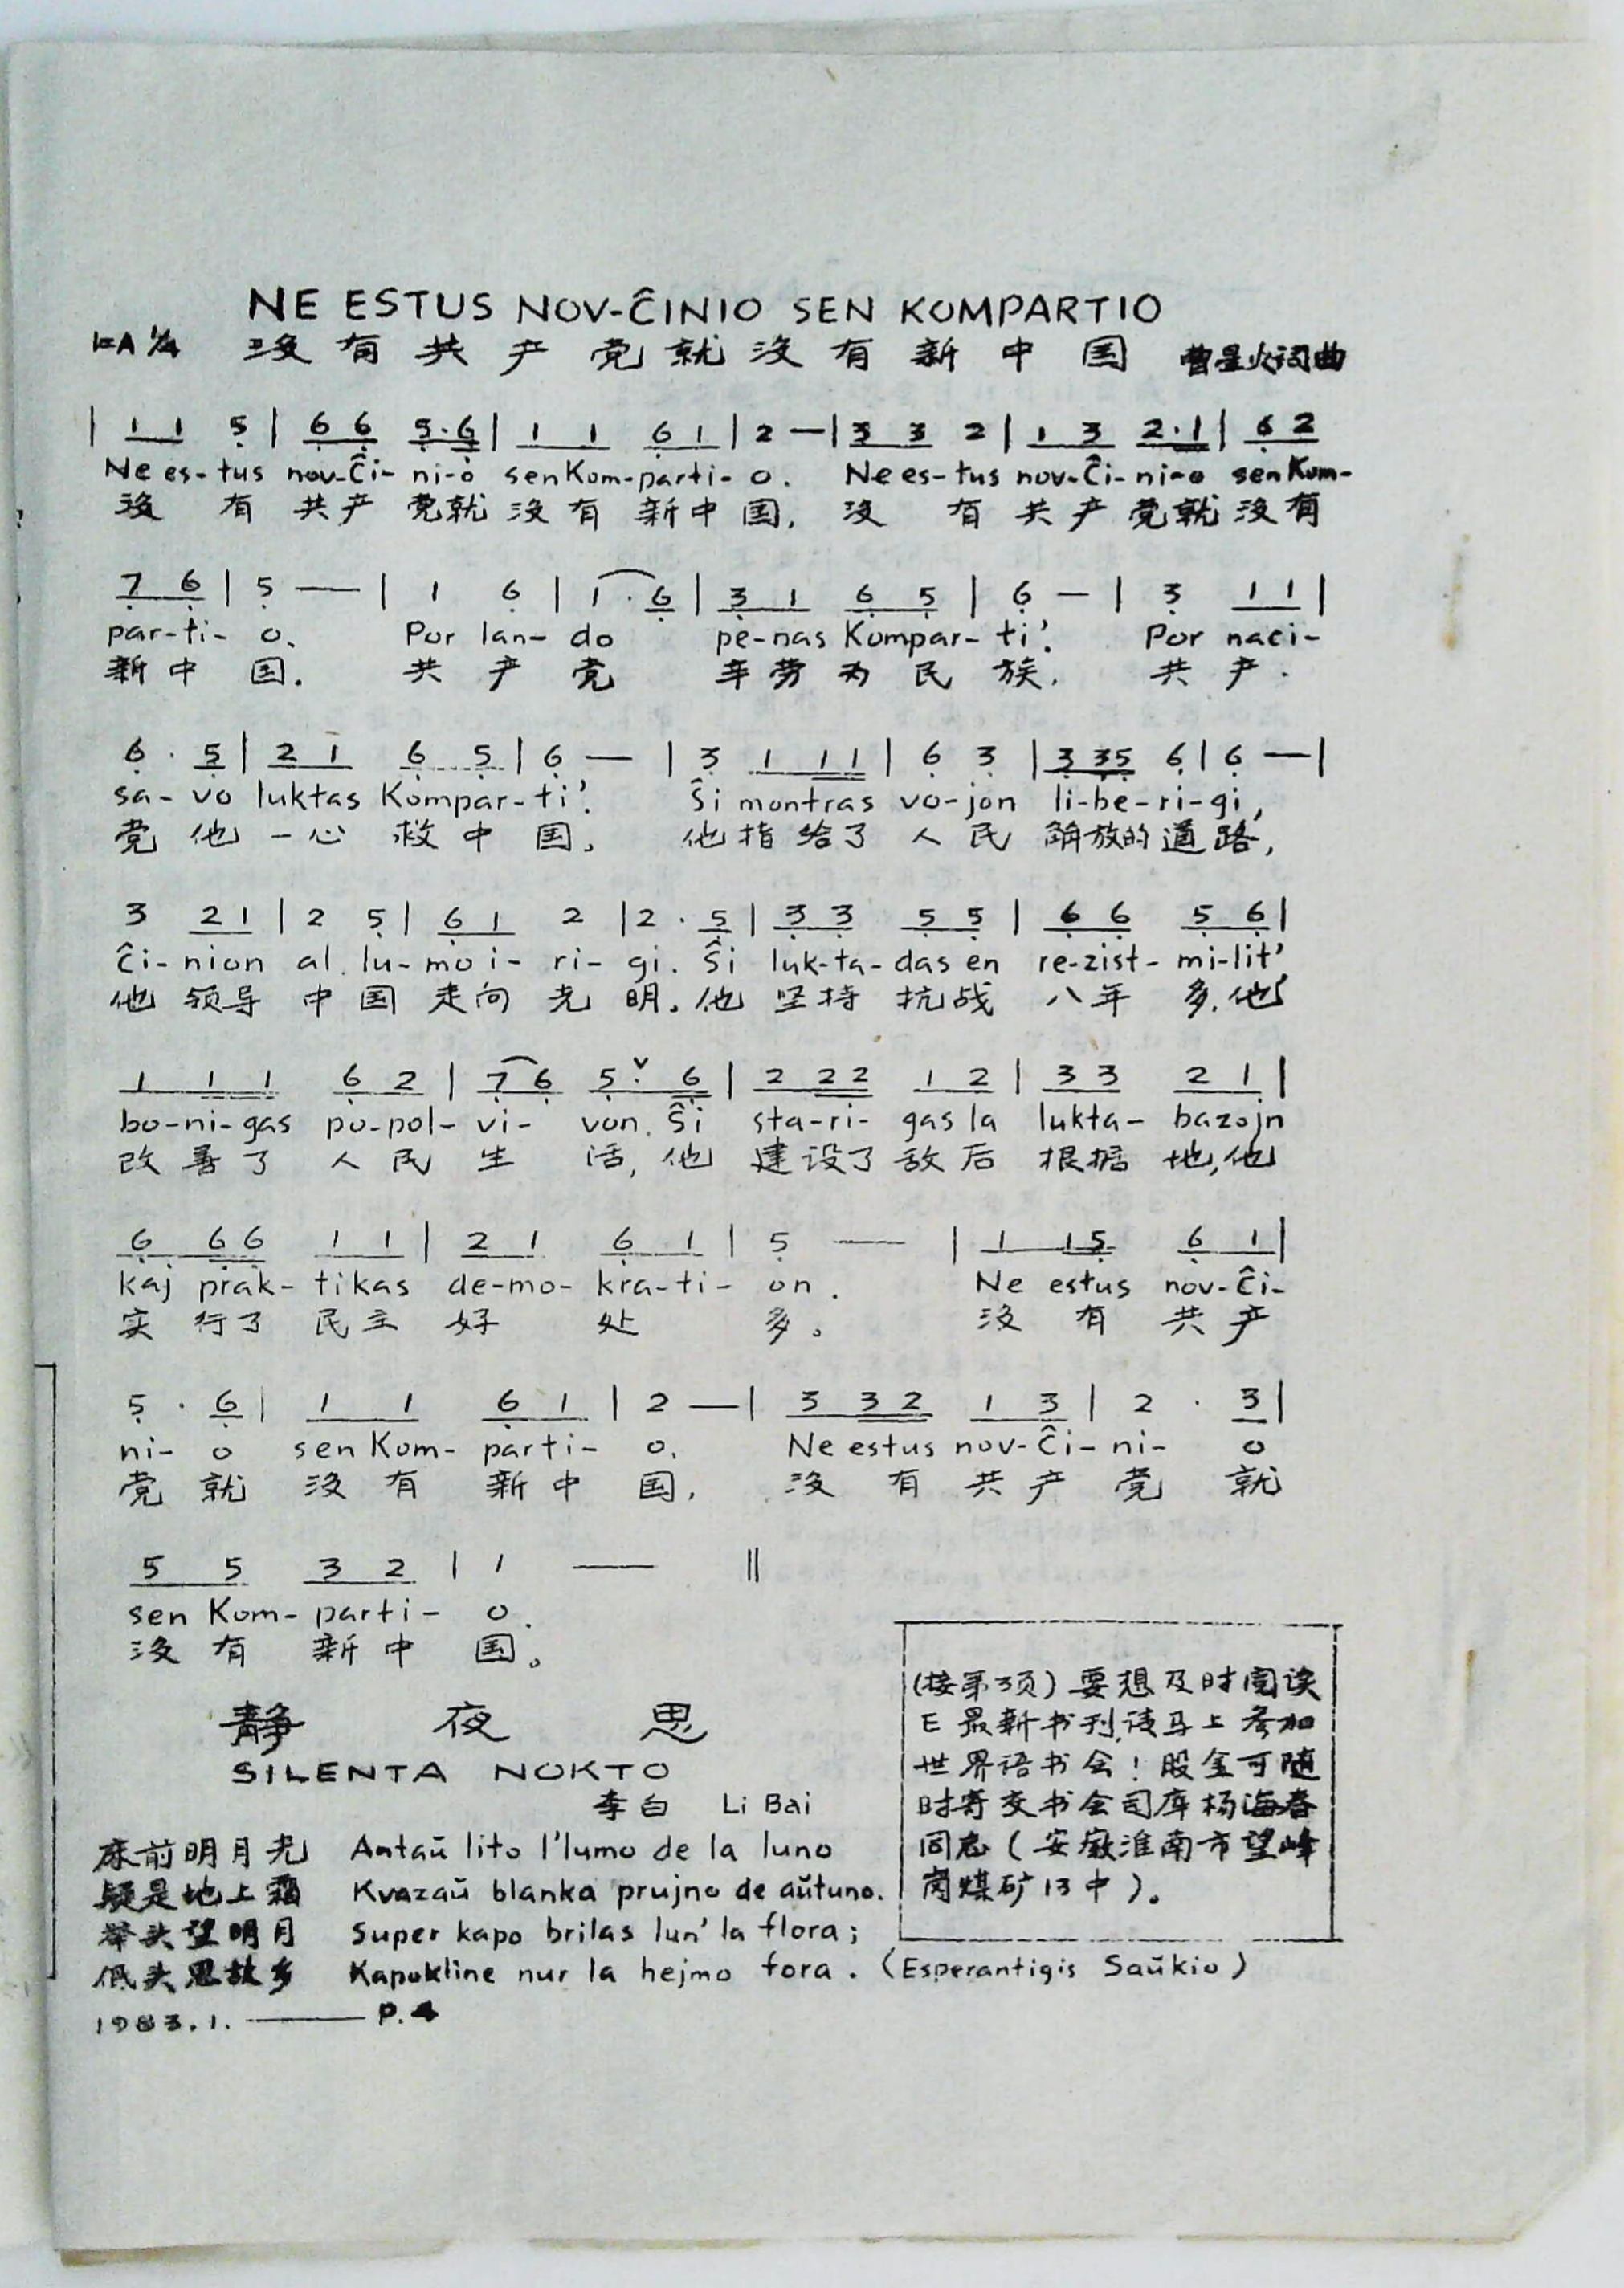 NE ESTUS NOV-ĈINIO SEN KOMPARTIO
1=A 1/4 没有共产党就没有新中国 曹星火词曲
| 1 1 5 | 6 6 5·6 | 1 1 6 1 | 2 — | 3 3 2 | 1 3 2·1 | 6 2
Ne es-tus nov-Ĉi-ni-o sen Kom-parti-o. Ne es-tus nov-Ĉi-ni-o sen Kom-
没有共产党就没有新中国, 没有共产党就没有
7 6 | 5 — | 1 6 | 1·6 | 3 1 6 5 | 6 — | 3 1 1 |
par-ti-o. Por lan-do pe-nas Kompar-ti'. Por naci-
新中国. 共产党 辛劳为民族. 共产.
6·5 | 2 1 6 5 | 6 — | 3 1 1 1 | 6 3 | 3 3 5 6 | 6 — |
sa-vo luktas Kompar-ti'. Ŝi montras vo-jon li-be-ri-gi,
党他一心救中国。 他指给了人民解放的道路,
3 2 1 | 2 5 | 6 1 2 | 2·5 | 3 3 5 5 | 6 6 5 6 |
Ĉi-nion al lu-mo i-ri-gi. Ŝi luk-ta-das en re-zist-mi-lit'
他领导中国走向光明。他坚持抗战八年多,他
1 1 1 6 2 | 7 6 5·6 | 2 2 2 1 2 | 3 3 2 1 |
bo-ni-gas po-pol-vi-von. Ŝi sta-ri-gas la lukta-bazojn
改善了人民生活,他建设了敌后根据地,他
6 6 6 1 1 | 2 1 6 1 | 5 — | 1 1 5 6 1 |
kaj prak-tikas de-mo-kra-ti-on. Ne estus nov-Ĉi-
实行了民主好处多。 没有共产
5·6 | 1 1 6 1 | 2 — | 3 3 2 1 3 | 2·3 |
ni-o sen Kom-parti-o. Ne estus nov-Ĉi-ni-o
党就没有新中国, 没有共产党就
5 5 3 2 | 1 — ‖
sen Kom-parti-o.
没有新中国。
静夜思
SILENTA NOKTO
李白 Li Bai
床前明月光 Antaŭ lito l'lumo de la luno
疑是地上霜 Kvazaŭ blanka prujno de aŭtuno.
举头望明月 Super kapo brilas lun' la flora;
低头思故乡 Kapokline nur la hejmo fora. (Esperantigis Saŭkio)
1983.1. —— P.4
(接第3页) 要想及时阅读
E 最新书刊,请马上参加
世界语书会! 股金可随
时寄交书会司库杨海春
同志 (安徽淮南市望峰
岗煤矿13中)。